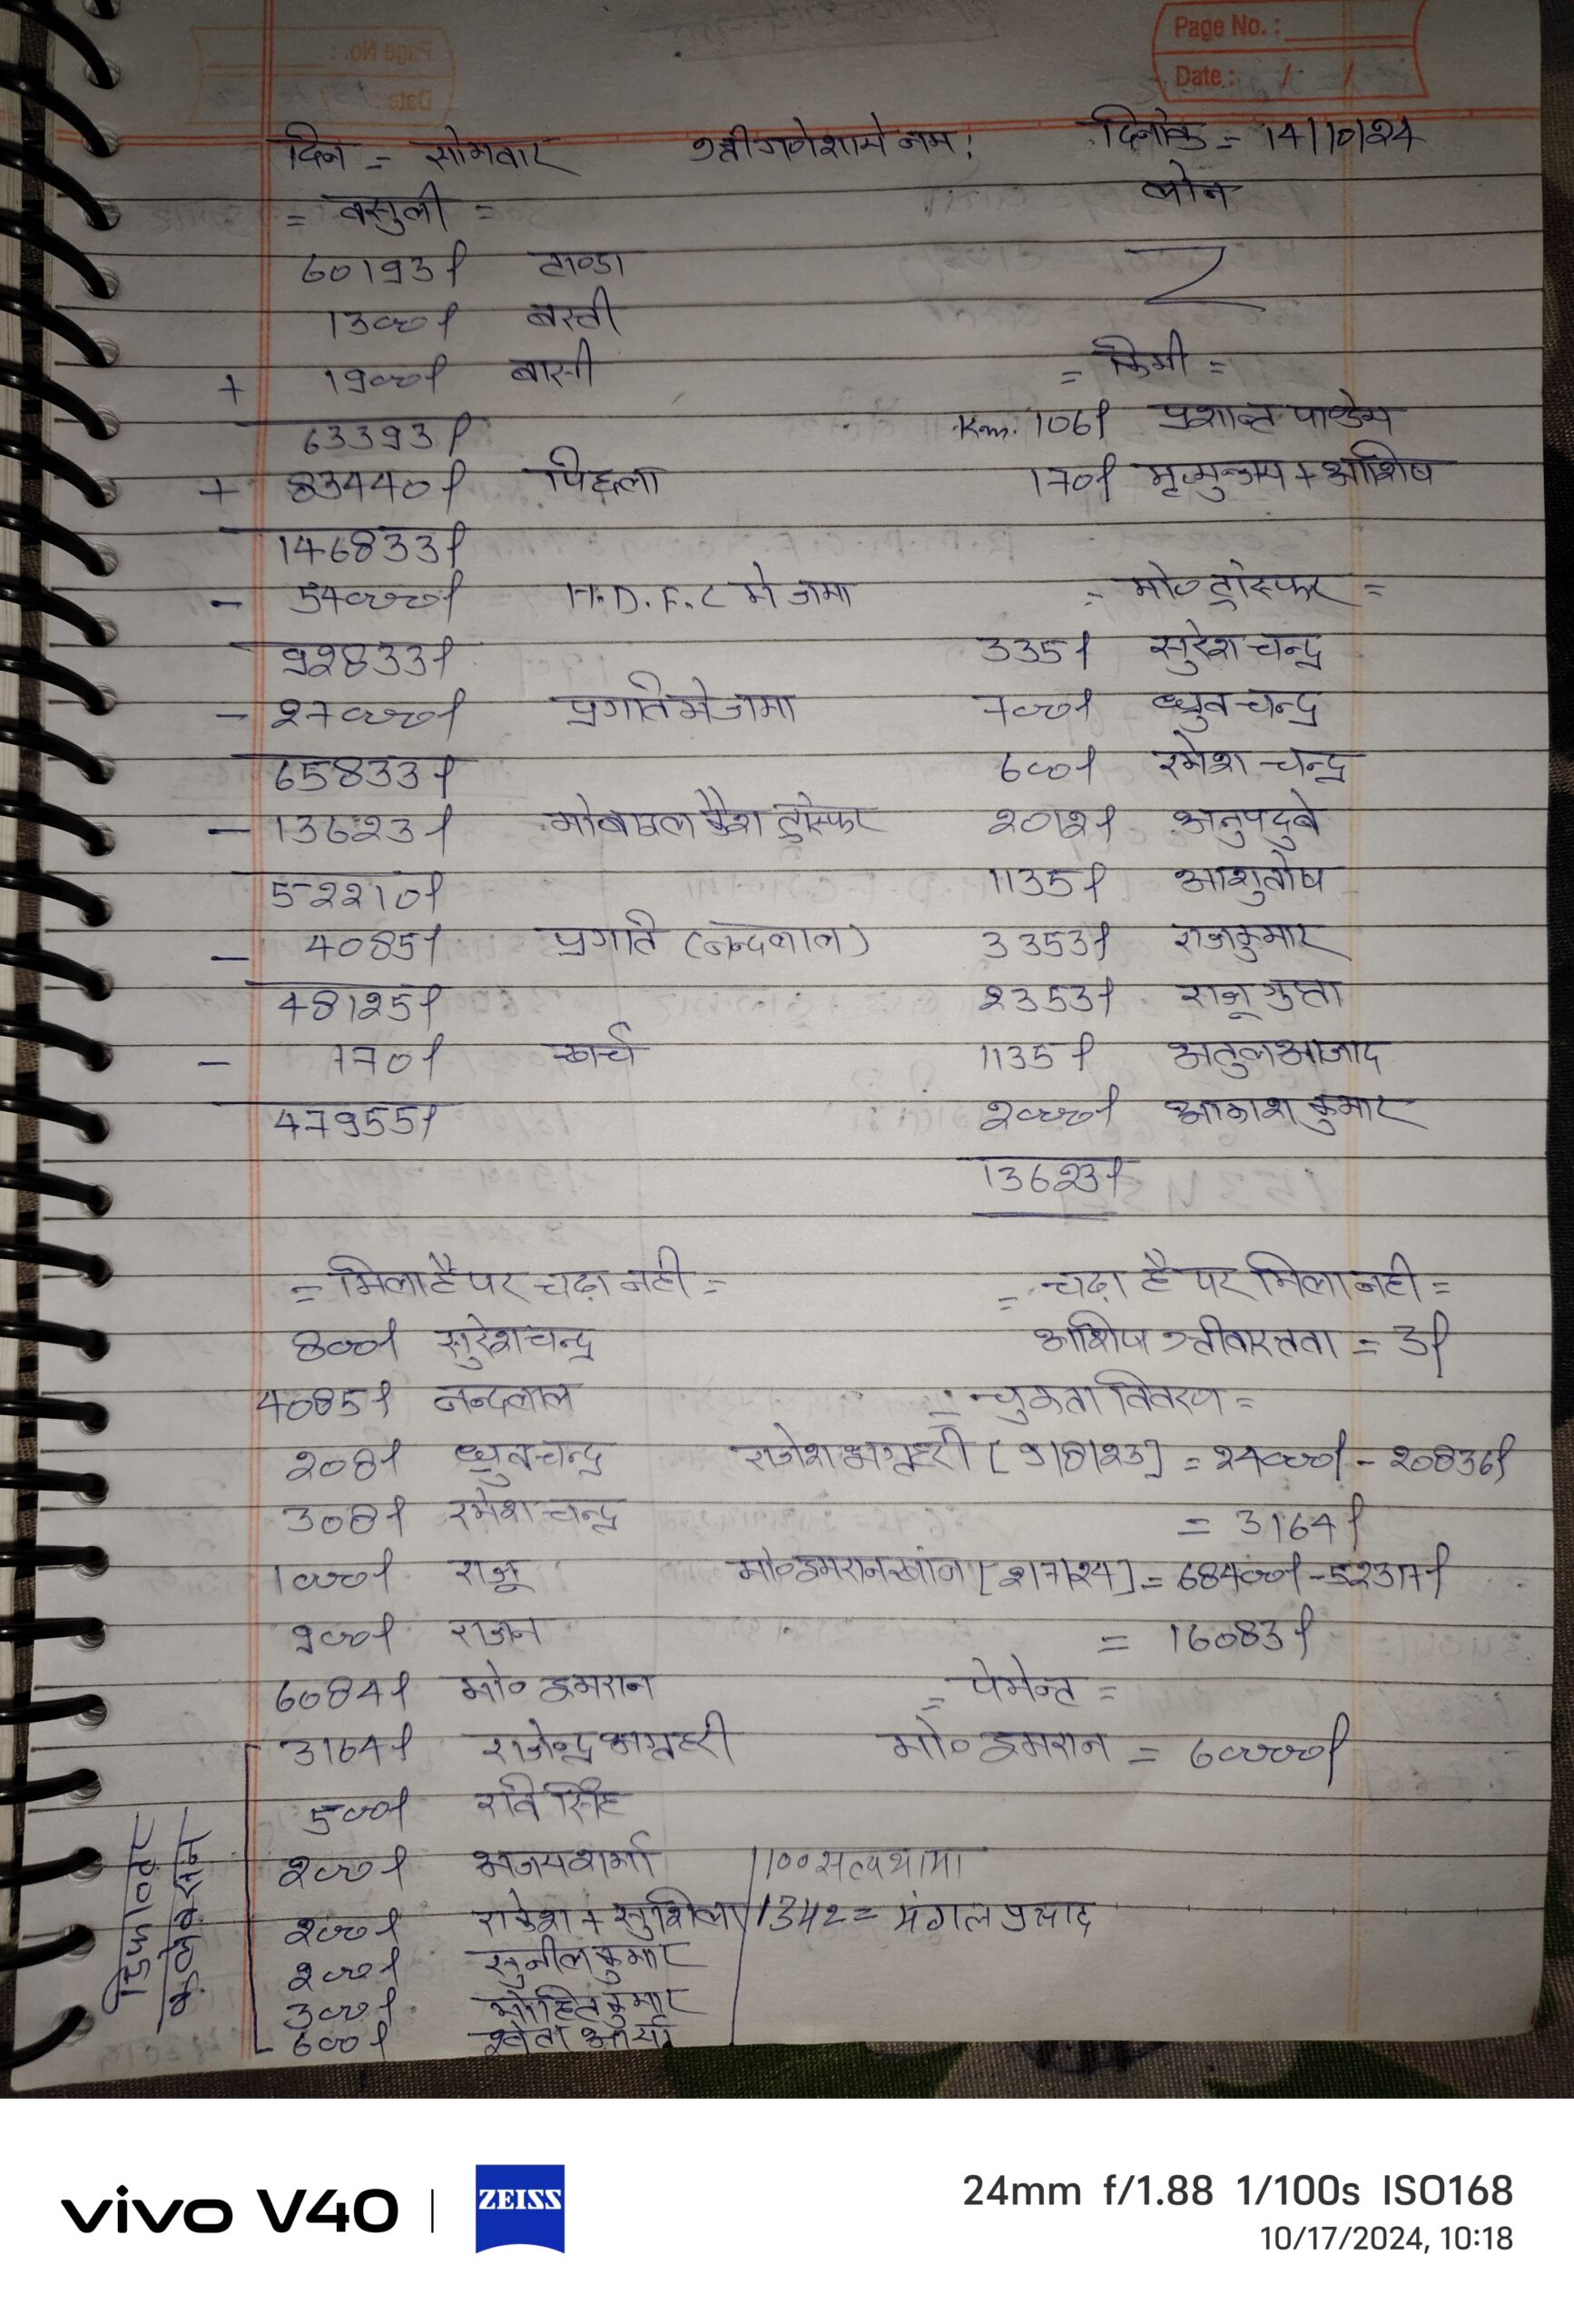 Page No. :
Date : / /
दिन = सोमवार श्री गणेशाये नमः दिनांक = 14/10/24
= वसुली = लोन
60193/ टाण्डा
1300/ बस्ती
+ 1900/ बासी = किमी =
63393/ Km. 106/ प्रशान्त पाण्डेय
+ 83440/ पिछला 170/ मृत्युन्जय + आशिष
146833/
- 54000/ H.D.F.C मे जमा = मो० ट्रांस्फर =
92833/ 335/ सुरेश चन्द्र
- 27000/ प्रगति मे जमा 700/ ध्रुव चन्द्र
65833/ 600/ रमेश चन्द्र
- 13623/ मोबाइल कैश ट्रांस्फर 2012/ अनुप दुबे
52210/ 1135/ आशुतोष
- 4085/ प्रगति (नन्दलाल) 3353/ राजकुमार
48125/ 2353/ राजू गुप्ता
- 170/ खर्च 1135/ अतुल आजाद
47955/ 2000/ आकाश कुमार
13623/
= मिला है पर चढ़ा नही = = चढ़ा है पर मिला नही =
800/ सुरेश चन्द्र आशिष श्रीवास्तवा = 3/
4085/ नन्दलाल = चुकता विवरण =
208/ ध्रुव चन्द्र राजेश अग्रहरी [9/8/23] = 24000/ - 20836/
308/ रमेश चन्द्र = 3164/
1000/ राजू मो० इमरान खांन [2/7/24] = 68400/ - 52317/
900/ राजन = 16083/
6084/ मो० इमरान = पेमेन्ट =
3164/ राजेन्द्र अग्रहरी मो० इमरान = 60000/
500/ रवि सिंह
200/ अजय शर्मा 1100 सत्यभामा
200/ राकेश + सुशिला 1342 = मंगल प्रसाद
200/ सुनील कुमार
300/ मोहित कुमार
600/ श्वेता आर्या
डिफाल्टर
कलेक्सन
vivo V40 | ZEISS
24mm f/1.88 1/100s ISO168
10/17/2024, 10:18